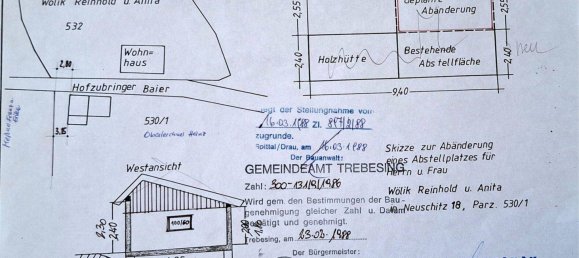 Wölik Reinhold u. Anita
532
Wohn-
haus
2,80
Hofzubringer Baier
3,15
530/1
2,55
2,55
geplante
Abänderung
Holzhütte
Bestehende
Abstellfläche
2,40
2,40
9,40
liegt der Stellungnahme vom
16.03.1988 Zl. 847/2/88
zugrunde.
Spittal/Drau, am 16.03.1988
Der Bauanwalt:
GEMEINDEAMT TREBESING
Zahl: 900-131/9/1986
Wird gem den Bestimmungen der Bau-
genehmigung gleicher Zahl u. Datum
bestätigt und genehmigt.
Trebesing, am 23.03.1988
Der Bürgermeister:
Skizze zur Abänderung
eines Abstellplatzes für
Herrn u. Frau
Wölik Reinhold u. Anita
in Neuschitz 18, Parz. 530/1
Westansicht
100/60
2,30
2,40